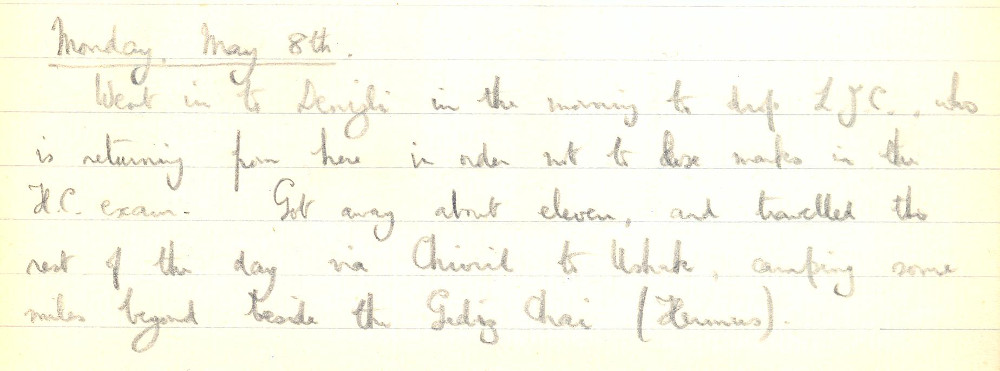 Monday, May 8th.
Went in to Denizli in the morning to drop L J C., who
is returning from here in order not to lose marks in the
H.C. exam. Got away about eleven, and travelled the
rest of the day via Chivril to Ushak, camping some
miles beyond beside the Gediz Chai (Hermus).